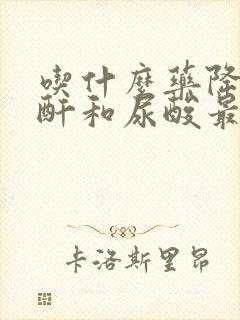 喫什麼藥降
酐和尿酸最
卡洛斯里昂